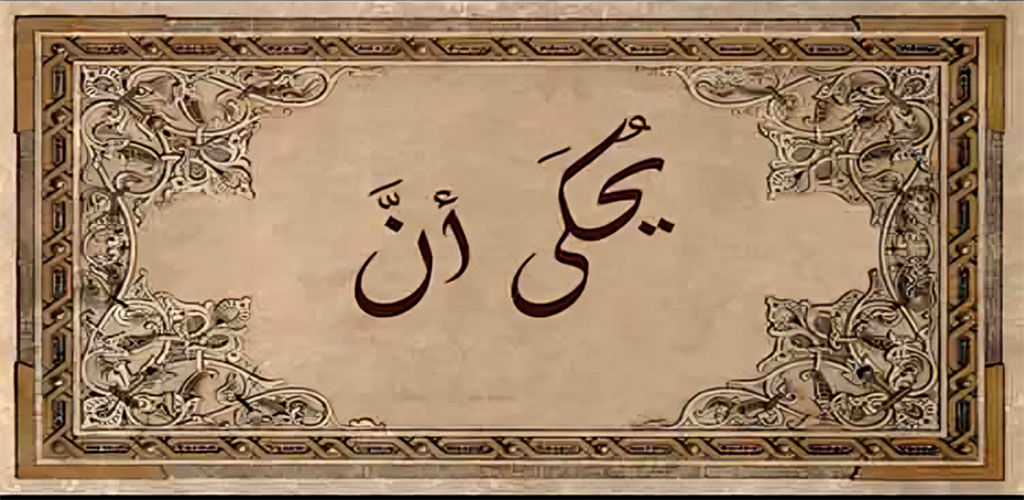 يُحكَى أنَّ